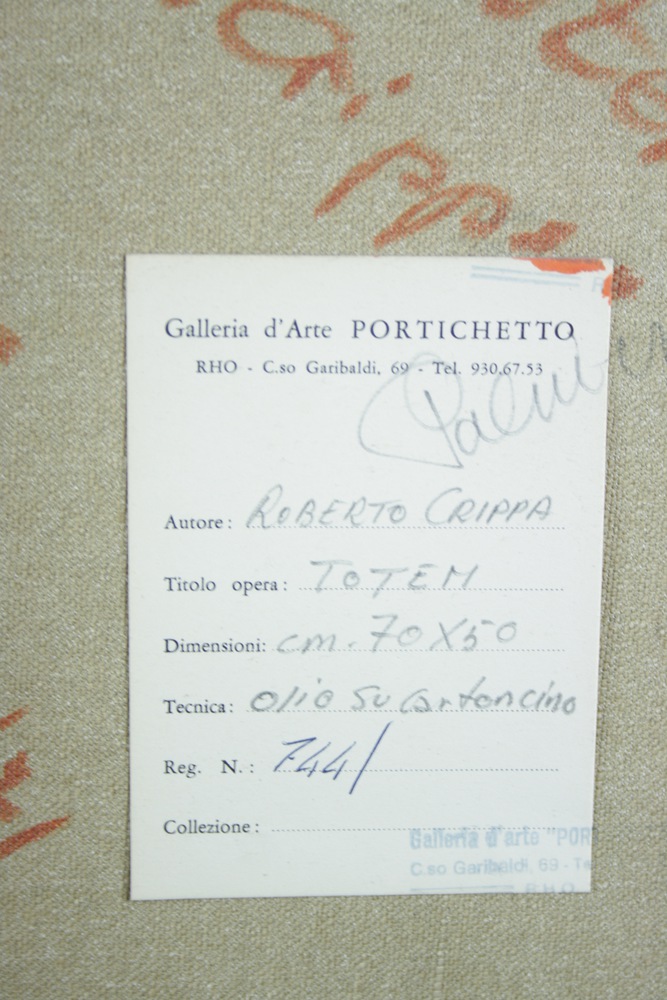 Crippa
Galleria d'Arte PORTICHETTO
RHO - C.so Garibaldi, 69 - Tel. 930.67.53
Autore: ROBERTO CRIPPA
Titolo opera: TOTEM
Dimensioni: cm. 70X50
Tecnica: olio su cartoncino
Reg. N.: 744/
Collezione:
Galleria d'arte "POR
C.so Garibaldi, 69 - Te
RHO